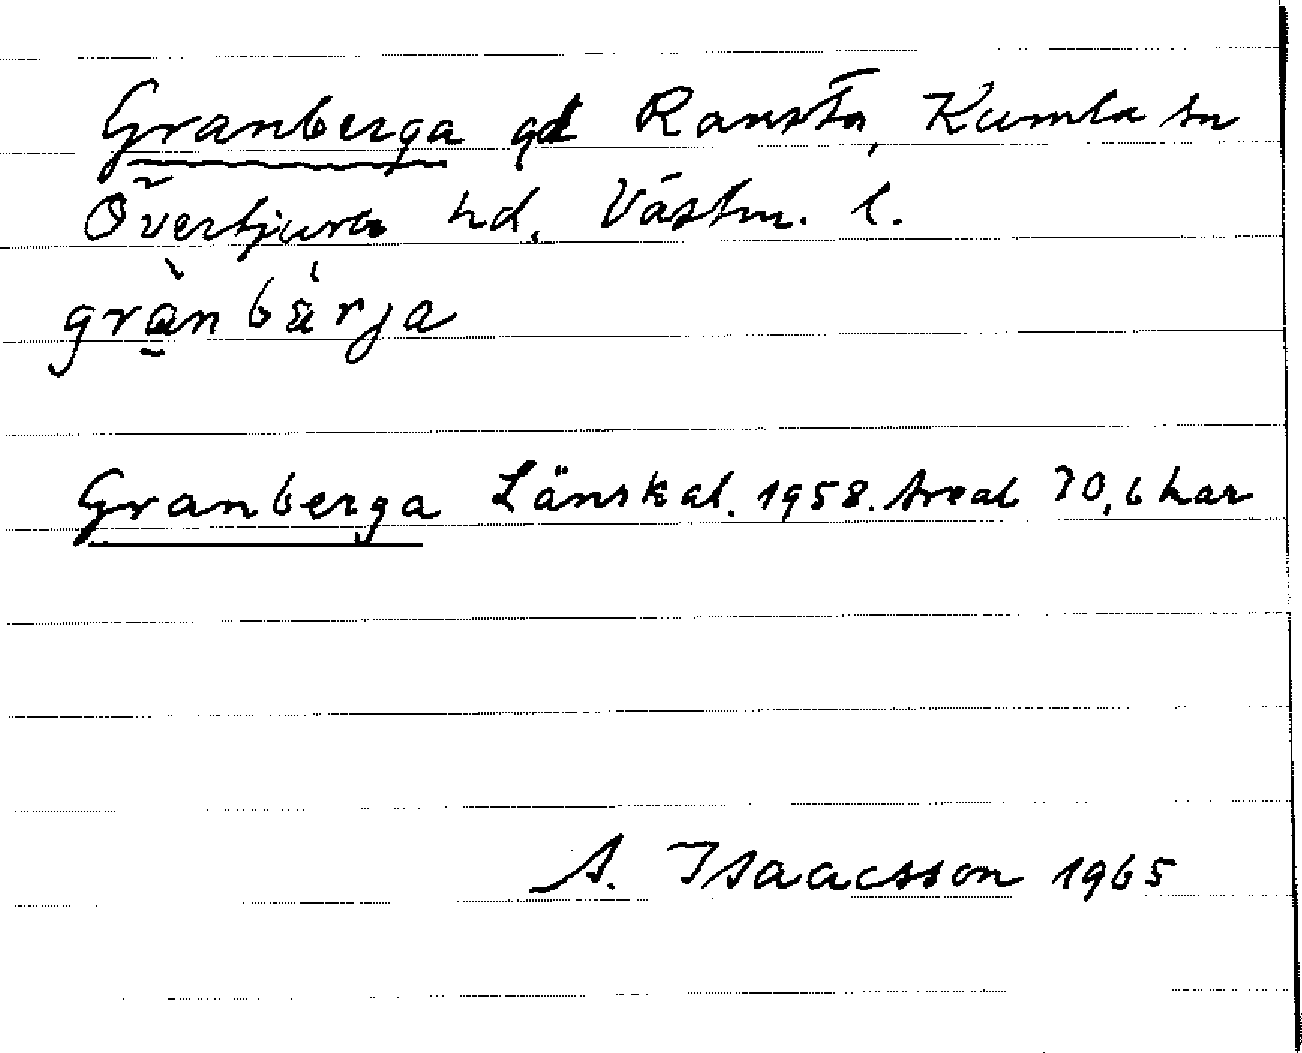 Granberga gd Ransta, Kumla sn
Övertjura hd. Västm. l.
grànbárja
Granberga Länskal. 1958. Areal 70,6 har
A. Isaacsson 1965